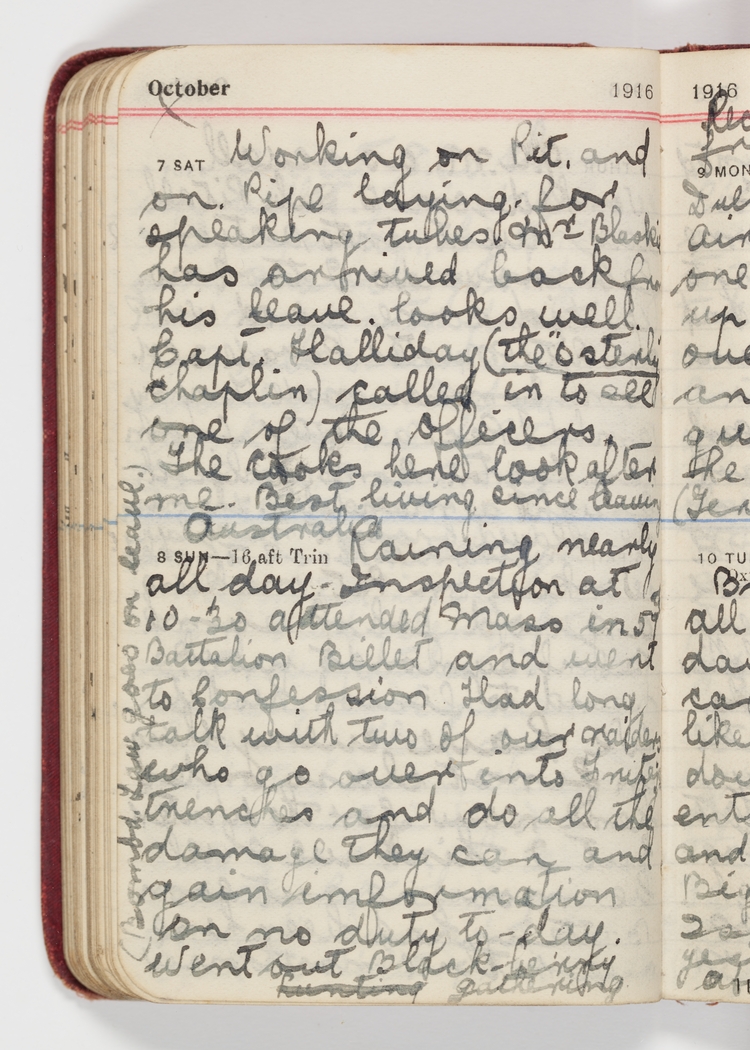 October 1916
7 SAT Working on Pit. and
on. Pipe laying. for
speaking tubes. Mr
has arrived back
his leave. looks well.
Capt. Halliday (the "Osterly
chaplin) called in to see
one of the Officers.
The Cooks here look after
me. Best living since leaving
Australia
8 SUN—16 aft Trin Raining nearly
all day - Inspection at
10-30 attended Mass in
Battalion Billet and went
to Confession Had long
talk with two of our raiders
who go over into
trenches and do all the
damage they can and
gain imformation
on no duty to-day.
Went out Black-berry
hunting gathering
goes on leave.)
1916
9 MON
one
up
an
The
10 TU
all
like
and